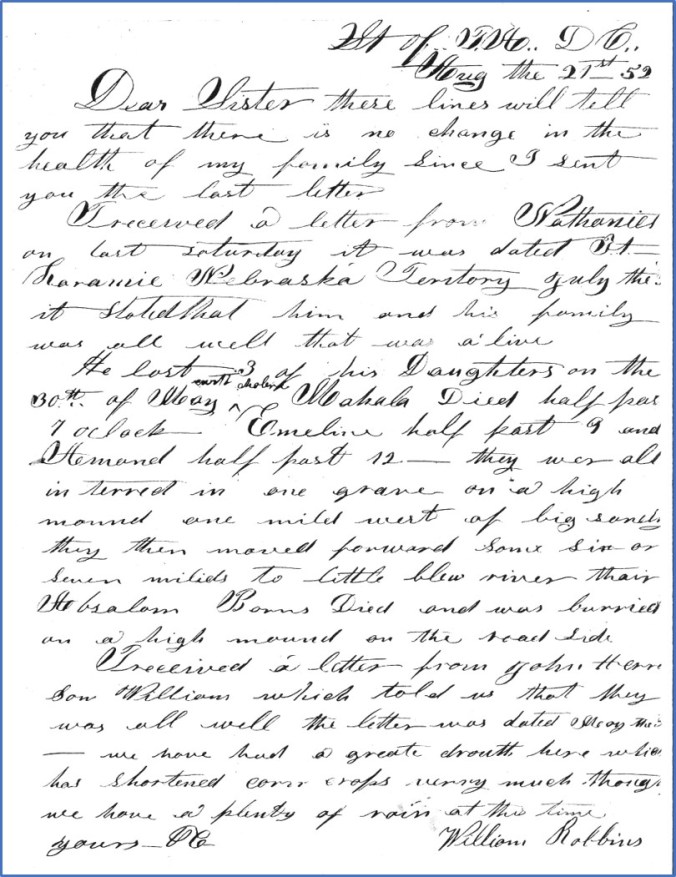 St of I.A.. D C..
Aug the 21st 52
Dear Sister these lines will tell
you that there is no change in the
health of my family since I sent
you the last letter
I received a letter from Nathaniel
on last saturday it was dated Ft
Laramie Nebraska Teritory July the
it stated that him and his family
was all well that was a live
He lost 3 of his Daughters on the
with cholera
30th of May ^ Mahala Died half pas
7 oclock Emeline half past 9 and
half past 12 — they wer all
in terred in one grave on a high
mound one mild west of big sandy
they then moved forward some six or
seven milids to little blew river thair
Absalom Died and was burried
on a high mound on the road side
I received a letter from John
son William which told us that they
was all well the letter was dated May the
— we have had a greate drouth here whic
has shortened corn crops verry much thoug
we have a plenty of rain at this time
yours &C William Robbins